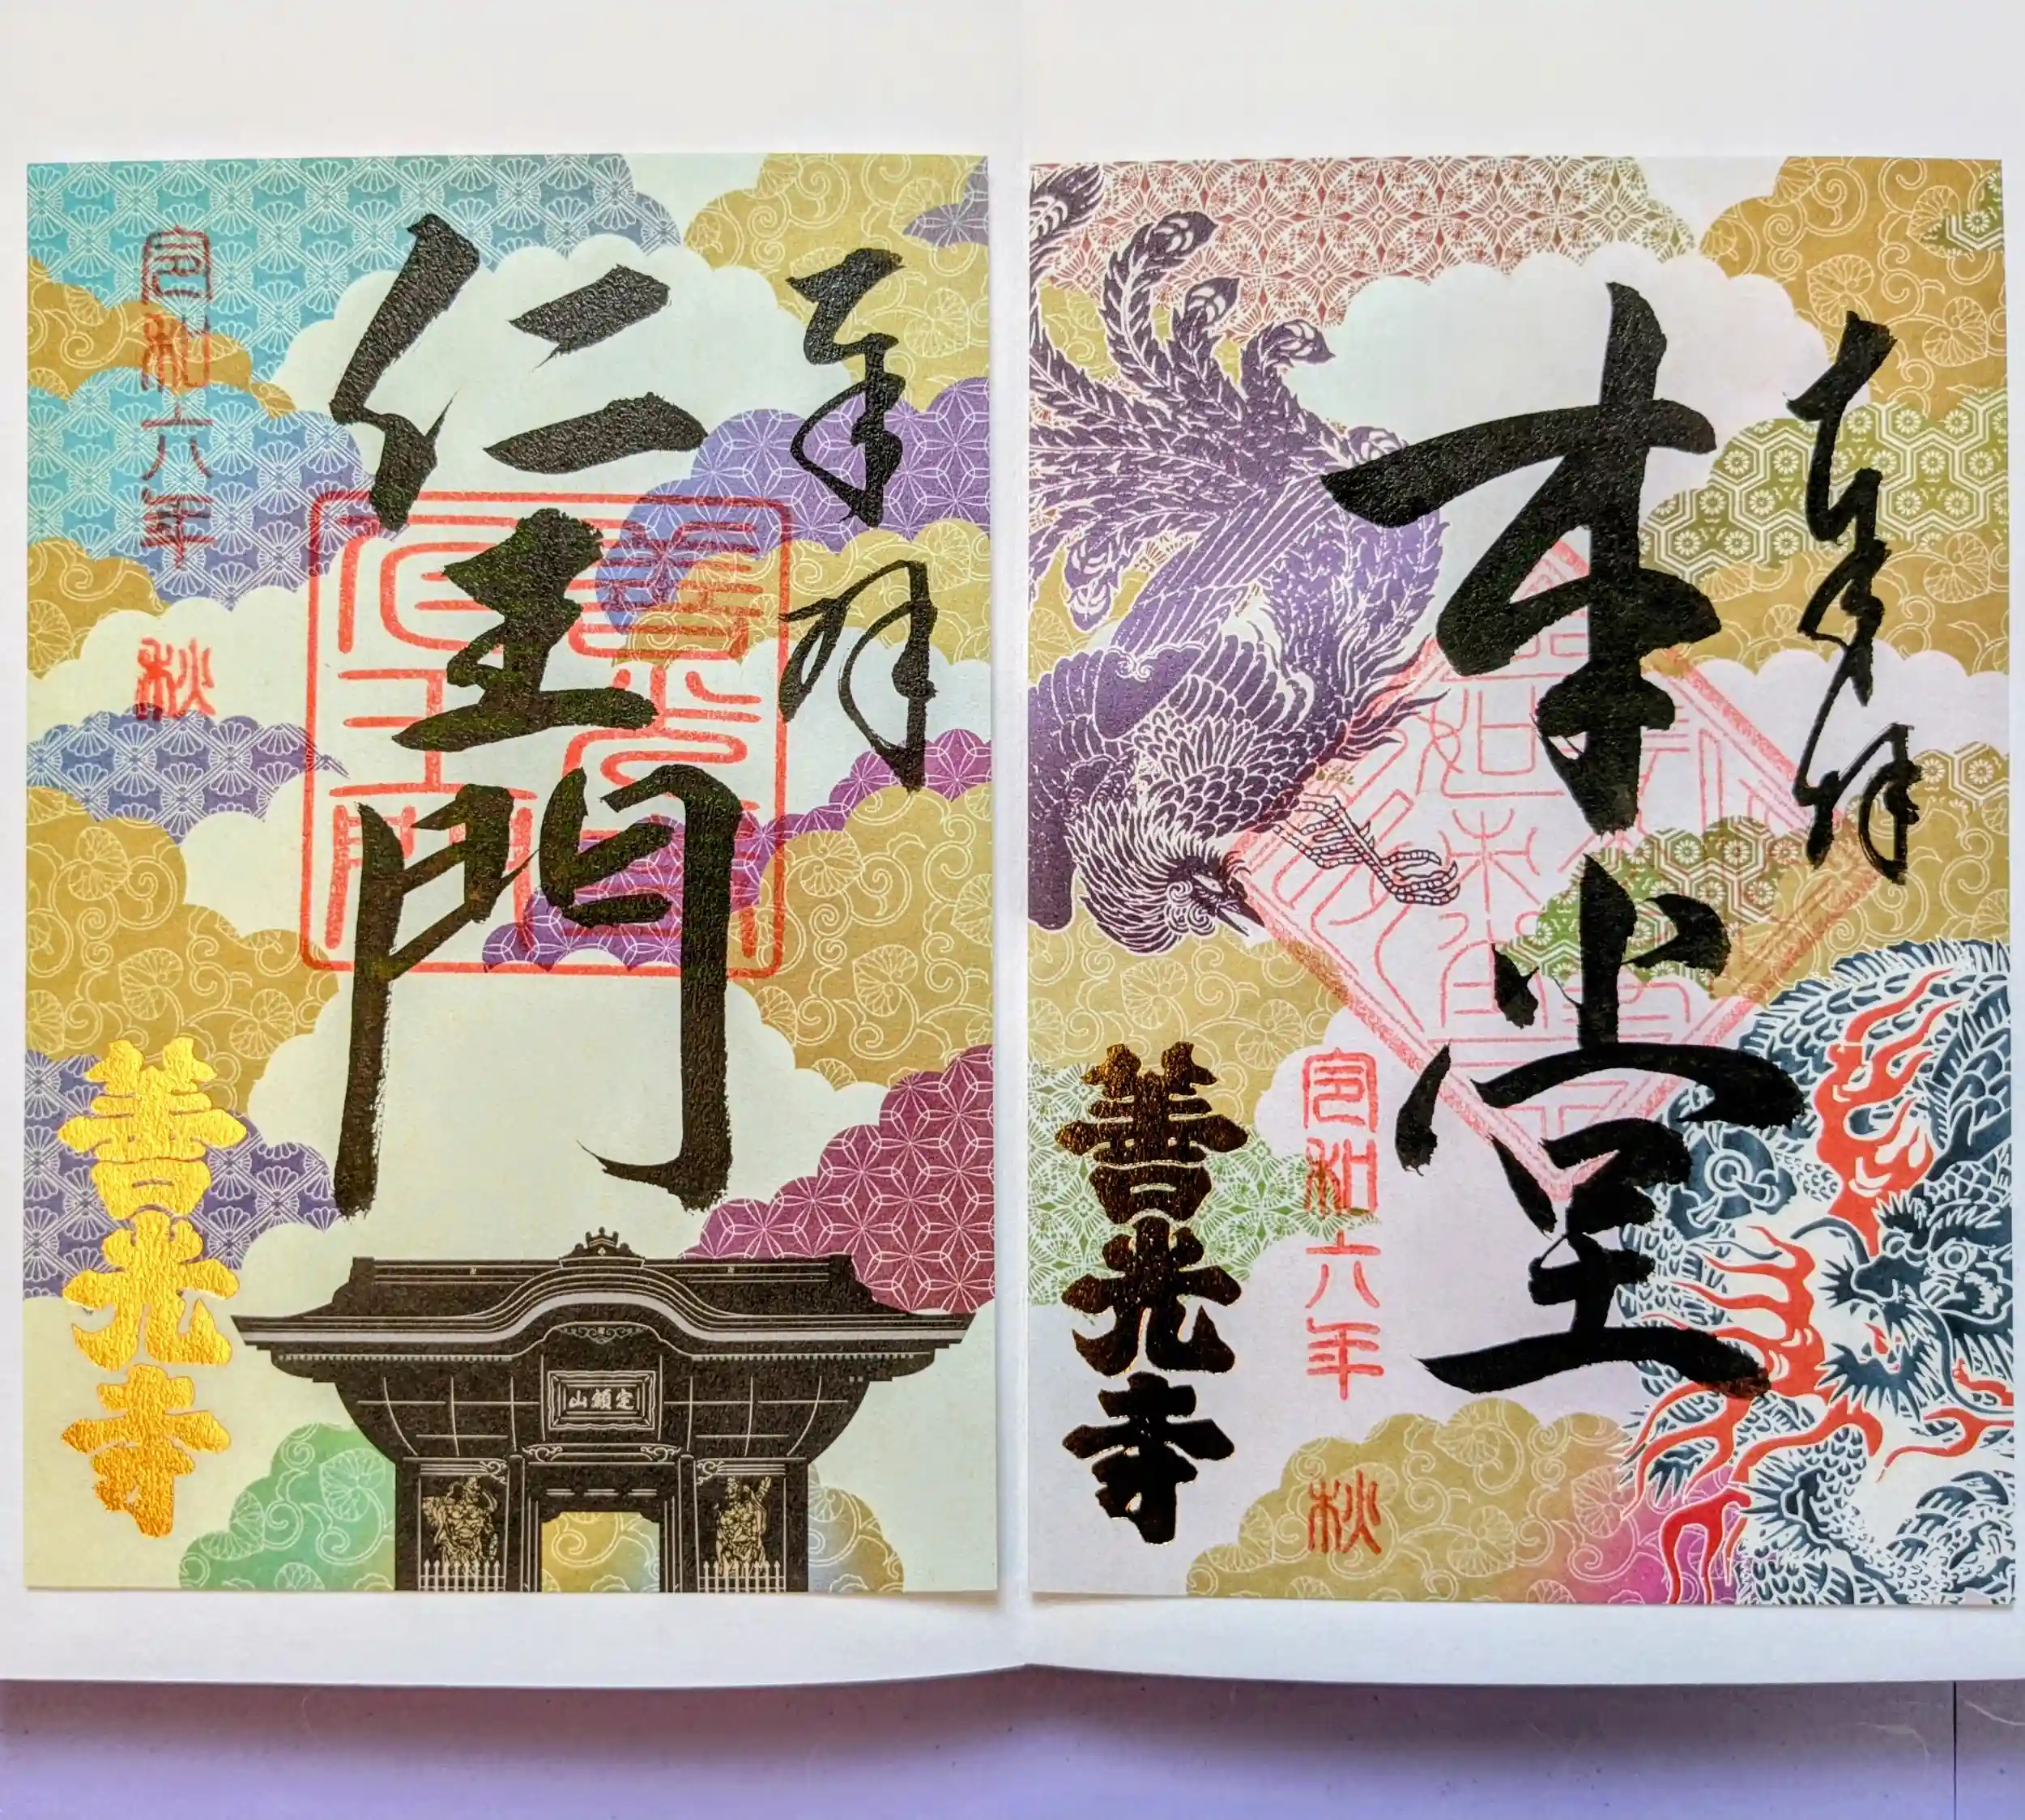 奉拝
本堂
令和六年
秋
善光寺
奉拝
仁王門
善光寺
仁王門
令和六年
秋
善光寺
定額山